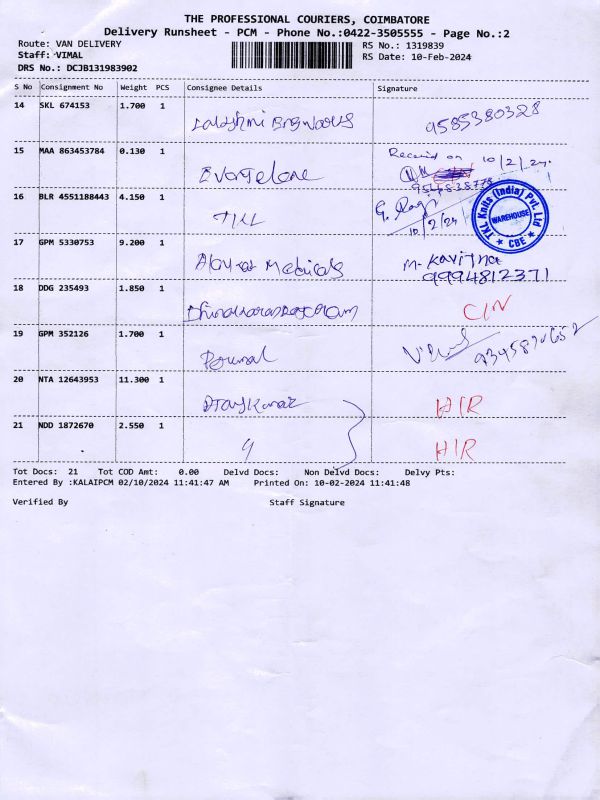 THE PROFESSIONAL COURIERS, COIMBATORE
Delivery Runsheet - PCM - Phone No.:0422-3505555 - Page No.:2
Route: VAN DELIVERY RS No.: 1319839
Staff: VIMAL RS Date: 10-Feb-2024
DRS No.: DCJB131983902
S No Consignment No Weight PCS Consignee Details Signature
14 SKL 674153 1.700 1
9585380328
15 MAA 863453784 0.130 1
Received on 10/2/24.
16 BLR 4551188443 4.150 1
10/2/24
TKL Knits (India) Pvt. Ltd
WAREHOUSE
★ CBE ★
17 GPM 5330753 9.200 1
Medicals
M. Kavitha
9994812371
18 DDG 235493 1.850 1
C/N
19 GPM 352126 1.700 1
Perumal
20 NTA 12643953 11.300 1
H/R
21 NDD 1872670 2.550 1
H/R
Tot Docs: 21 Tot COD Amt: 0.00 Delvd Docs: Non Delvd Docs: Delvy Pts:
Entered By :KALAIPCM 02/10/2024 11:41:47 AM Printed On: 10-02-2024 11:41:48
Verified By Staff Signature